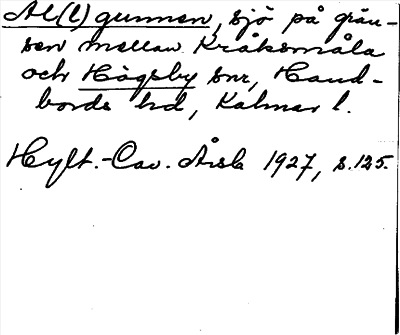 Al(l)gunnen, sjö på grän-
sen mellan Kråksmåla
och Högsby snr, Hand-
bords hd, Kalmar l.
Hylt.-Cav. Årsb 1927, s.125.